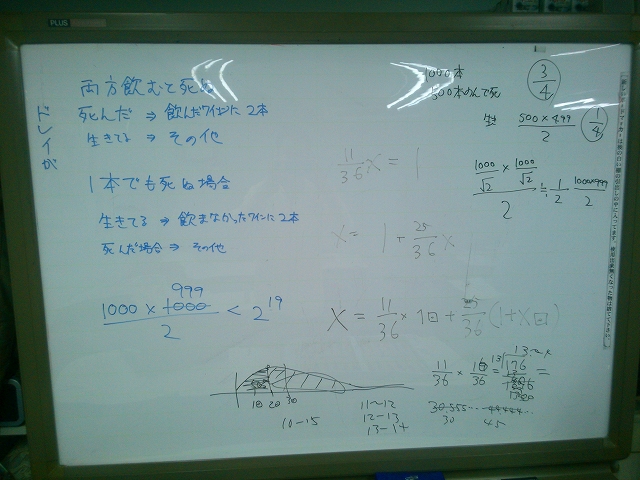 PLUS
ドレイが
両方飲むと死ぬ
死んだ ⇒ 飲んだワインに2本
生きてる ⇒ その他
1本でも死ぬ場合
生きてる ⇒ 飲まなかったワインに2本
死んだ場合 ⇒ その他
1000 × 1000 999 / 2 < 2^19
1000本
500本のんで死
3/4
500 × 499 / 2
1/4
1000/√2 × 1000/√2 / 2 ≒ 1/2 1000×999 / 2
11/36 x = 1
x = 1 + 25/36 x
X = 11/36 × 1回 + 25/36 (1+X回)
11/36 × 16/36 =
10 20 30
10-15
11〜12
12-13
13-1+
30.555... 44444...
30 45